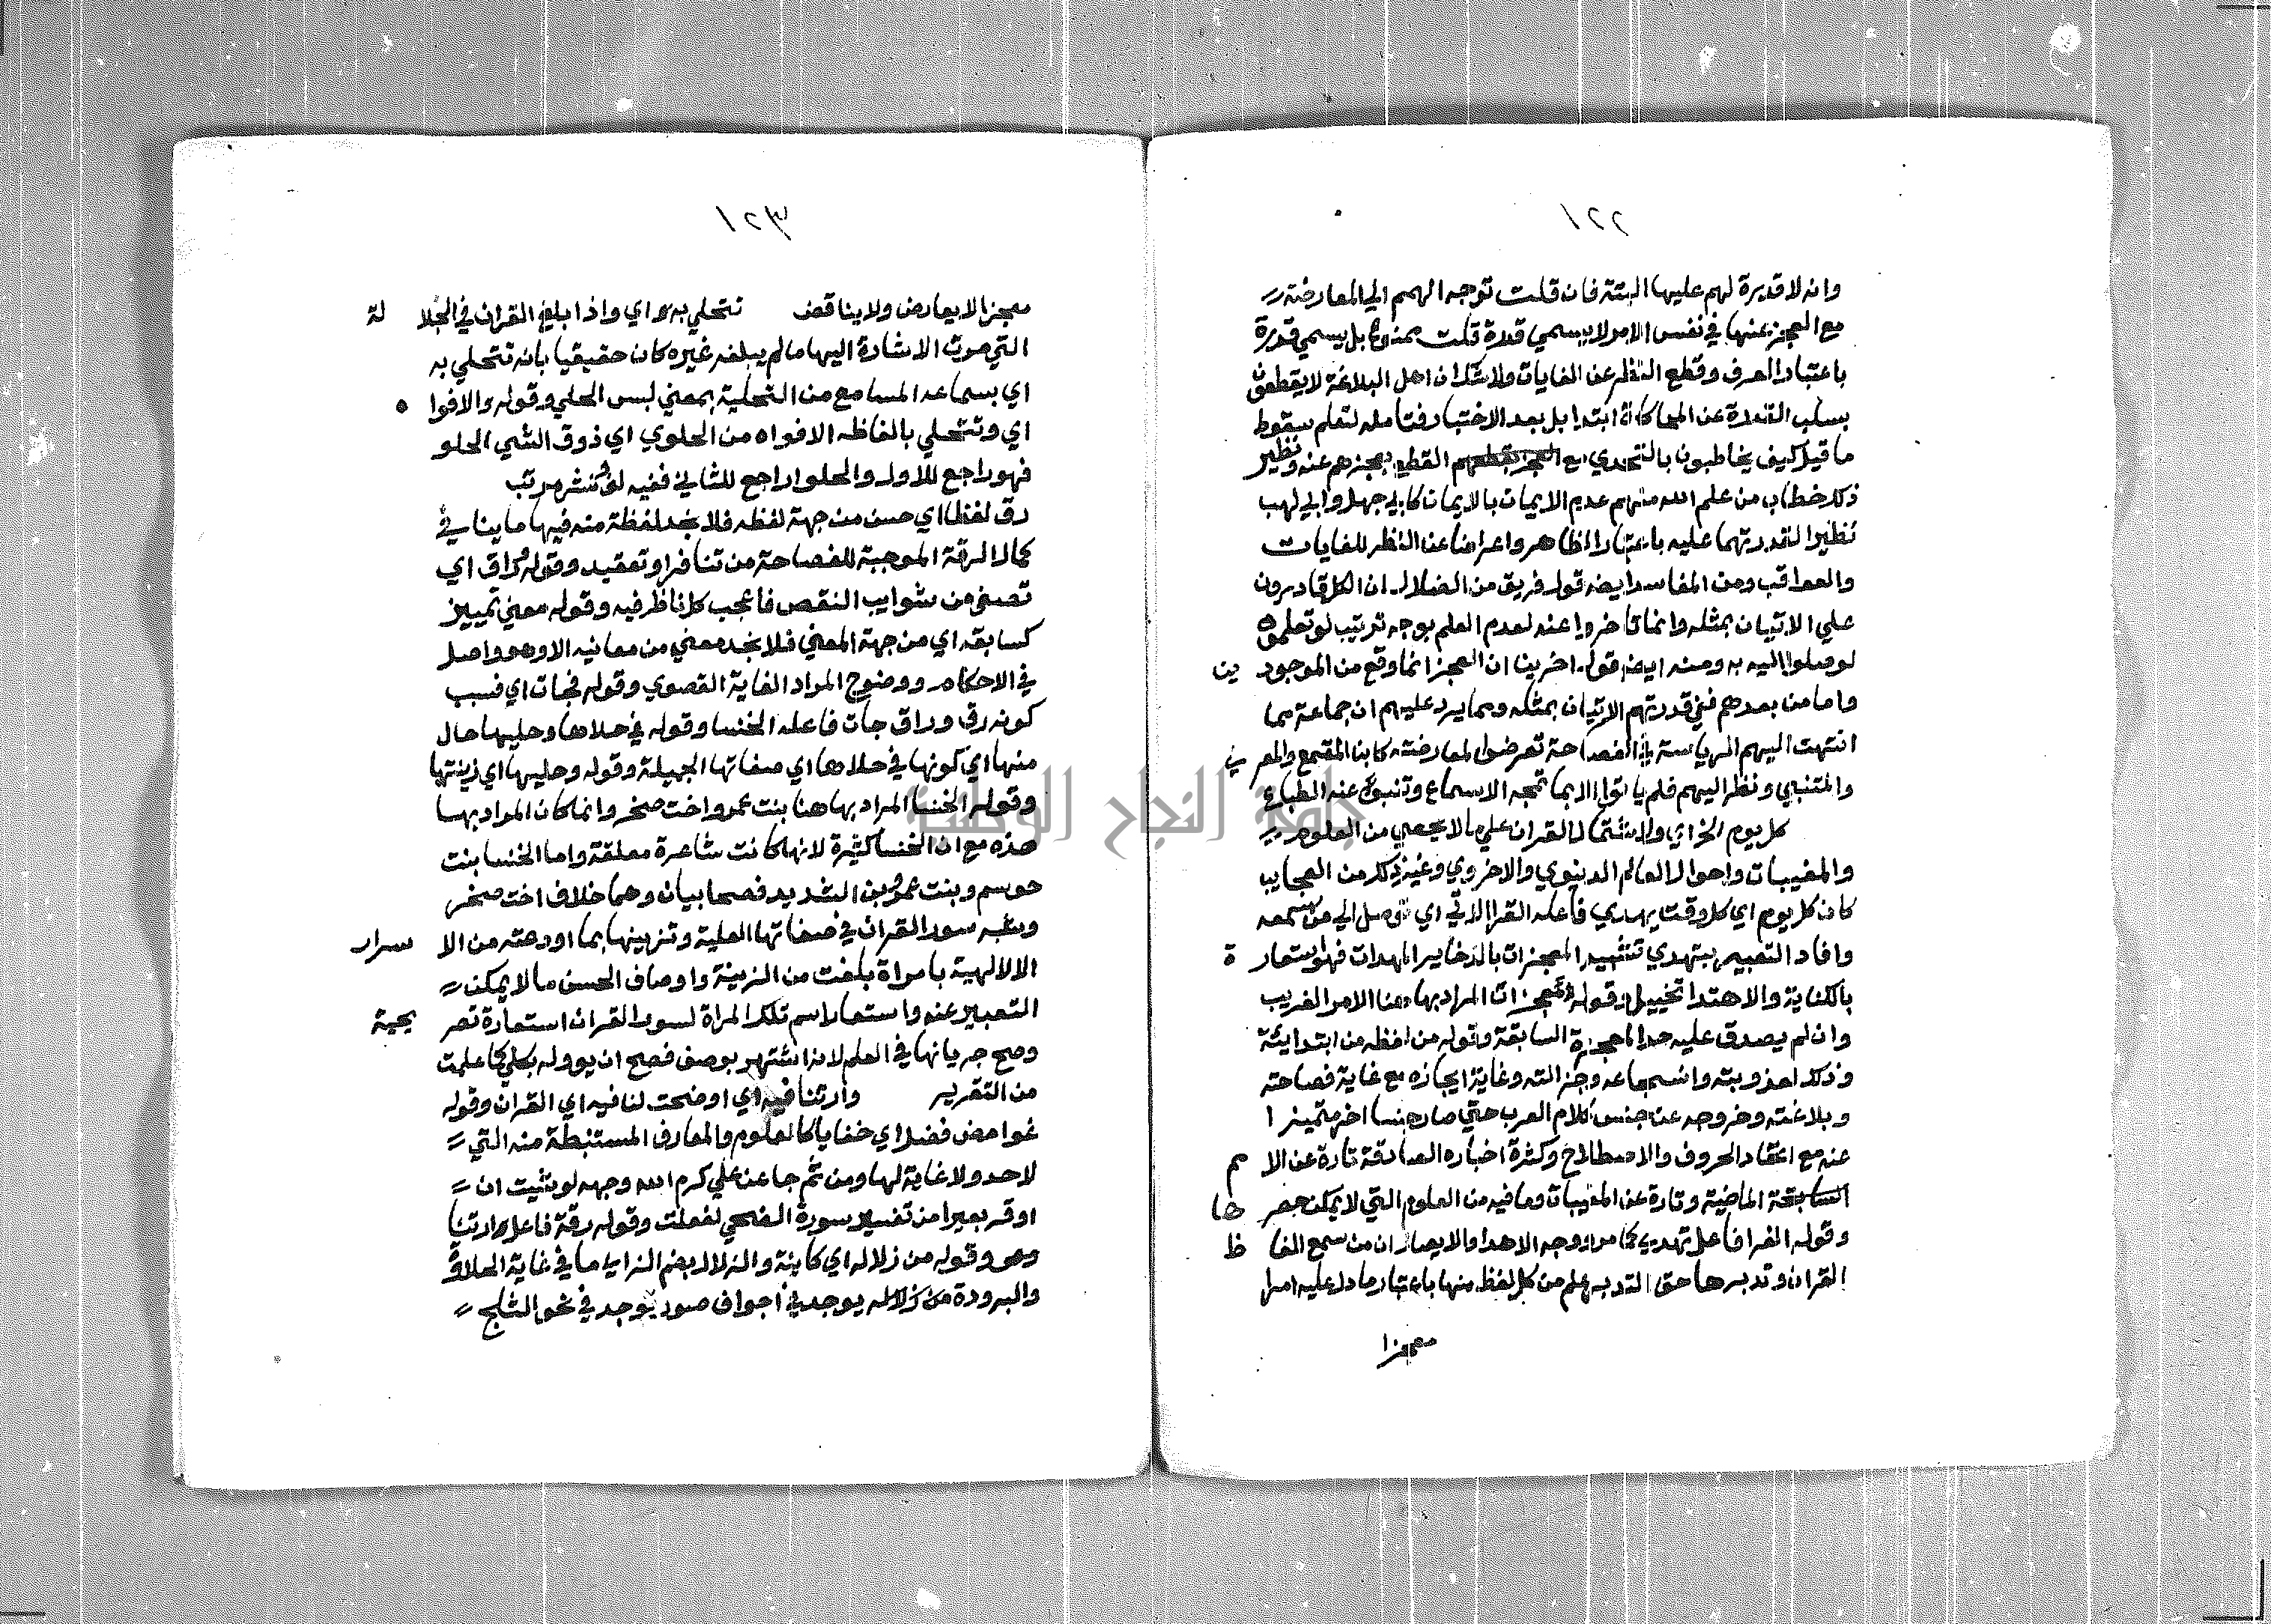 ١٢٢
وانه لا قديرة لهم عليها البتة فان قلت توجه الهمم الي المعارضة
مع العجز عنها في نفس الامر لا يسمي قدرة قلت ممنوع بل يسمي قدرة
باعتبار العرف وقطع النظر عن الغايات ولا شك ان اهل البلاغة لا يقطعون
بسلب القدرة عن المحاكاة ابتدا بل بعد الاختبار فتامله لتعلم سقوط
ما قيل كيف يخاطبون بالتحدي مع القطع بعجزهم عنه ونظير
ذلك خطاب من علم الله منهم عدم الايمان بالايمان كابي جهل وابي لهب
نظير القدرتهما عليه باعتبار الظاهر واعراضا عن النظر للغايات
والعواقب ومن المفاسد ايضه قول فريق من الضلال ان الكل قادرون
علي الاتيان بمثله وانما تاخروا عنه لعدم العلم بوجه ترتيب لو تعلموه
لوصلوا اليه به ومنه ايضه قول اخرين ان العجز انما وقع من الموجود ين
واما من بعدهم ففي قدرتهم الاتيان بمثله ومما يرد عليهم ان جماعة مما
انتهت اليهم الرياسة في الفصاحة تعرضوا لمعارضته كابن المقمع والمعر ي
والمتنبي ونظر اليهم فلم ياتوا الا بما تمجه الاسماع وتنبو عنه الطباع
كل يوم الخ اي ولاشتمال القران علي ما لا يحصي من العلوم
والمغيبات واحوال العالم الدنيوي والاخروي وغير ذلك من العجايب
كان كل يوم اي كل وقت يهدي فاعله القرا الاتي اي توصل الي من سمعه
وافاد التعبير بتهدي تشبيه المعجزات بالدخاير المهدات فهو استعار ة
بالكناية والاهتدا تخييل وقوله معجزات المراد بها هنا الامر الغريب
وان لم يصدق عليه حد المعجزة السابقة وقوله من لفظه من ابتدايئة
وذلك لعذوبته وانسجامه وجزالته وغاية ايجازه مع غاية فصاحته
وبلاغته وخروجه عن جنس كلام العرب حتي صار جنسا اخر متميزا
عنه مع اتحاد الحروف والاصطلاح وكثرة اخباره الصادقة تارة عن الا مم
السابقة الماضية وتارة عن المغيبات وما فيه من العلوم التي لا يمكن حصر ها
وقوله القرا فاعل تهدي كما مر ووجه الاهدا والايصار ان من سمع الفا ظ
القران وتدبرها حق التدبر علم من كل لفظ منها باعتبار ما دل عليه امرا
معجزا
١٢٣
معجزا لا يعارض ولا يناقض تتحلي به اي واذا بلغ القران في الجلا لة
التي مرت الاشارة اليها ما لم يبلغه غيره كان حقيقيا بانه تتحلي به
اي بسماعه المسامع من التحلية بمعني لبس الحلي وقوله والافوا ه
اي وتتحلي بالفاظه الافواه من الحلوي اي ذوق الشي الحلو
فهو راجع للاول والحلوا راجع للثاني ففيه لف ونشر مرتب
رق لفظا اي حسن من جهة لفظه فلا نجد لفظة منه فيها ما ينا في
كمال الرقة الموجبة للفصاحة من تنافر او تعقيد وقوله وراق اي
تصفي من شوايب النقص فاعجب كل ناظر فيه وقوله معني تمييز
كسابقه اي من جهة المعني فلا نجد معني من معانيه الا وهو واصل
في الاحكام ووضوح المراد الغاية القصوي وقوله فجات اي فسبب
كونه رق وراق جات فاعله الخنسا وقوله في حلاها وحليها حال
منها اي كونها في حلاها اي صفاتها الجميلة وقوله وحليها اي زينتها
وقوله الخنسا المراد بها هنا بنت عمرو اخت صخر وانما كان المراد بها
هذه مع ان الخنسا كثيرة لانها كانت شاعرة معلقة واما الخنسا بنت
حوسم وبنت عمرو بن الشديد فصحابيان وهما خلاف اخت صخر
وشبه سور القران في صفاتها العلية وتزيينها بما اودعته من الا سرار
الالهية بامراة بلغت من الزينة واوصاف الحسن ما لا يمكن
التعبير عنه واستعار اسم تلك المراة لسور القران استعارة تصر يحية
وصح جريانها في العلم لانه اشتهر بوصف فصح ان يووله بكلي كما علمت
من التقرير وارتنا فيه اي اوضحت لنا فيه اي القران وقوله
غوامض فضل اي خفايا كالعلوم والمعارف المستنبطة منه التي
لا حد ولا غاية لها ومن ثم جا عن علي كرم الله وجهه لو شيت ان
اوقر بعيرا من تفسير سورة الضحي لفعلت وقوله رقة فاعل وارتنا
وهو وقوله من زلاله اي كاينة والزلال بضم الزاي ما في غاية الحلاوة
والبرودة من زلاله يوجد في اجواف صور يوجد في نحو الثلج